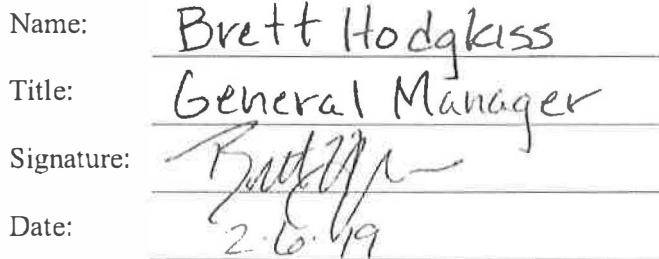 Name: Brett Hodgkiss
Title: General Manager
Signature:
Date: 2.6.19